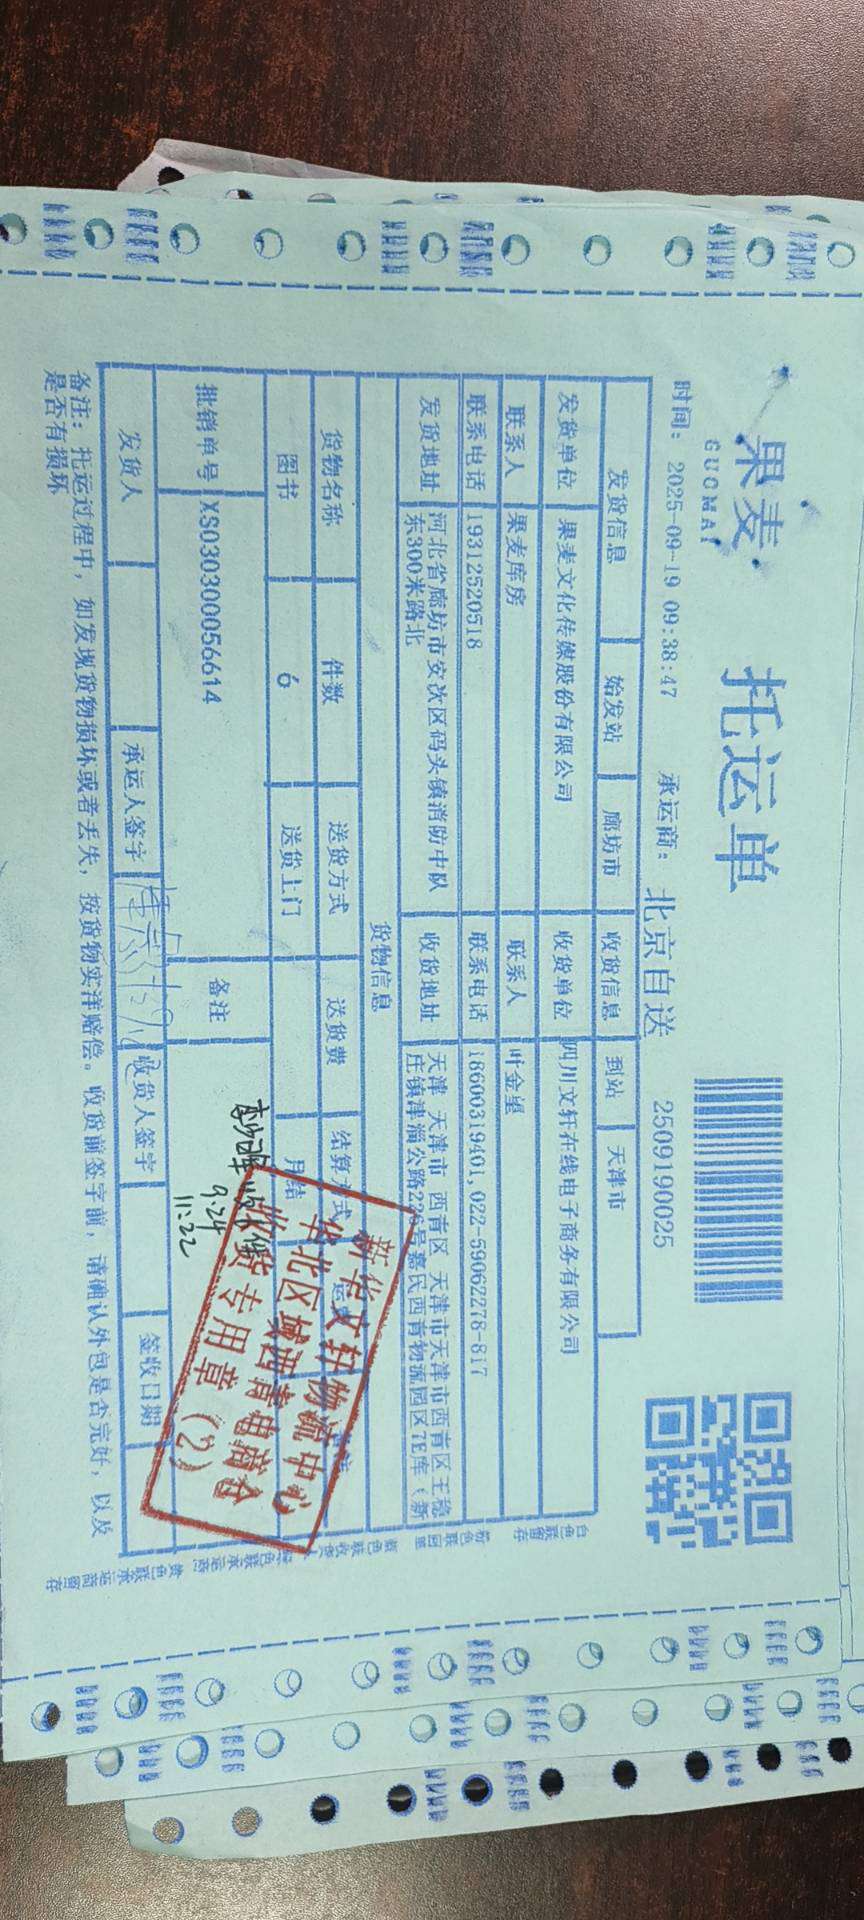 果麦
GUOMAI
托运单
时间: 2025-09-19 09:38:47 承运商: 北京自送 2509190025
发货信息 始发站 廊坊市 收货信息 到站 天津市
发货单位 果麦文化传媒股份有限公司 收货单位 四川文轩在线电子商务有限公司
联系人 果麦库房 联系人 叶金望
联系电话 19312520518 联系电话 18600319401,022-59062278-817
发货地址 河北省廊坊市安次区码头镇消防中队
东300米路北
收货地址 天津 天津市 西青区 天津市天津市西青区王稳
庄镇津淄公路226号嘉民西青物流园区7E库(新
货物信息
货物名称 件数 送货方式 送货费 结算方式
图书 6 送货上门 月结
批销单号 XS030300056614 备注
9.24
11:22
新华文轩物流中心
华北区域西青电商仓
收货专用章(2)
发货人 承运人签字 收货人签字 签收日期
备注: 托运过程中, 如发现货物损坏或者丢失, 按货物实洋赔偿。收货前签字前, 请确认外包是否完好, 以及
是否有损坏
白色联留存